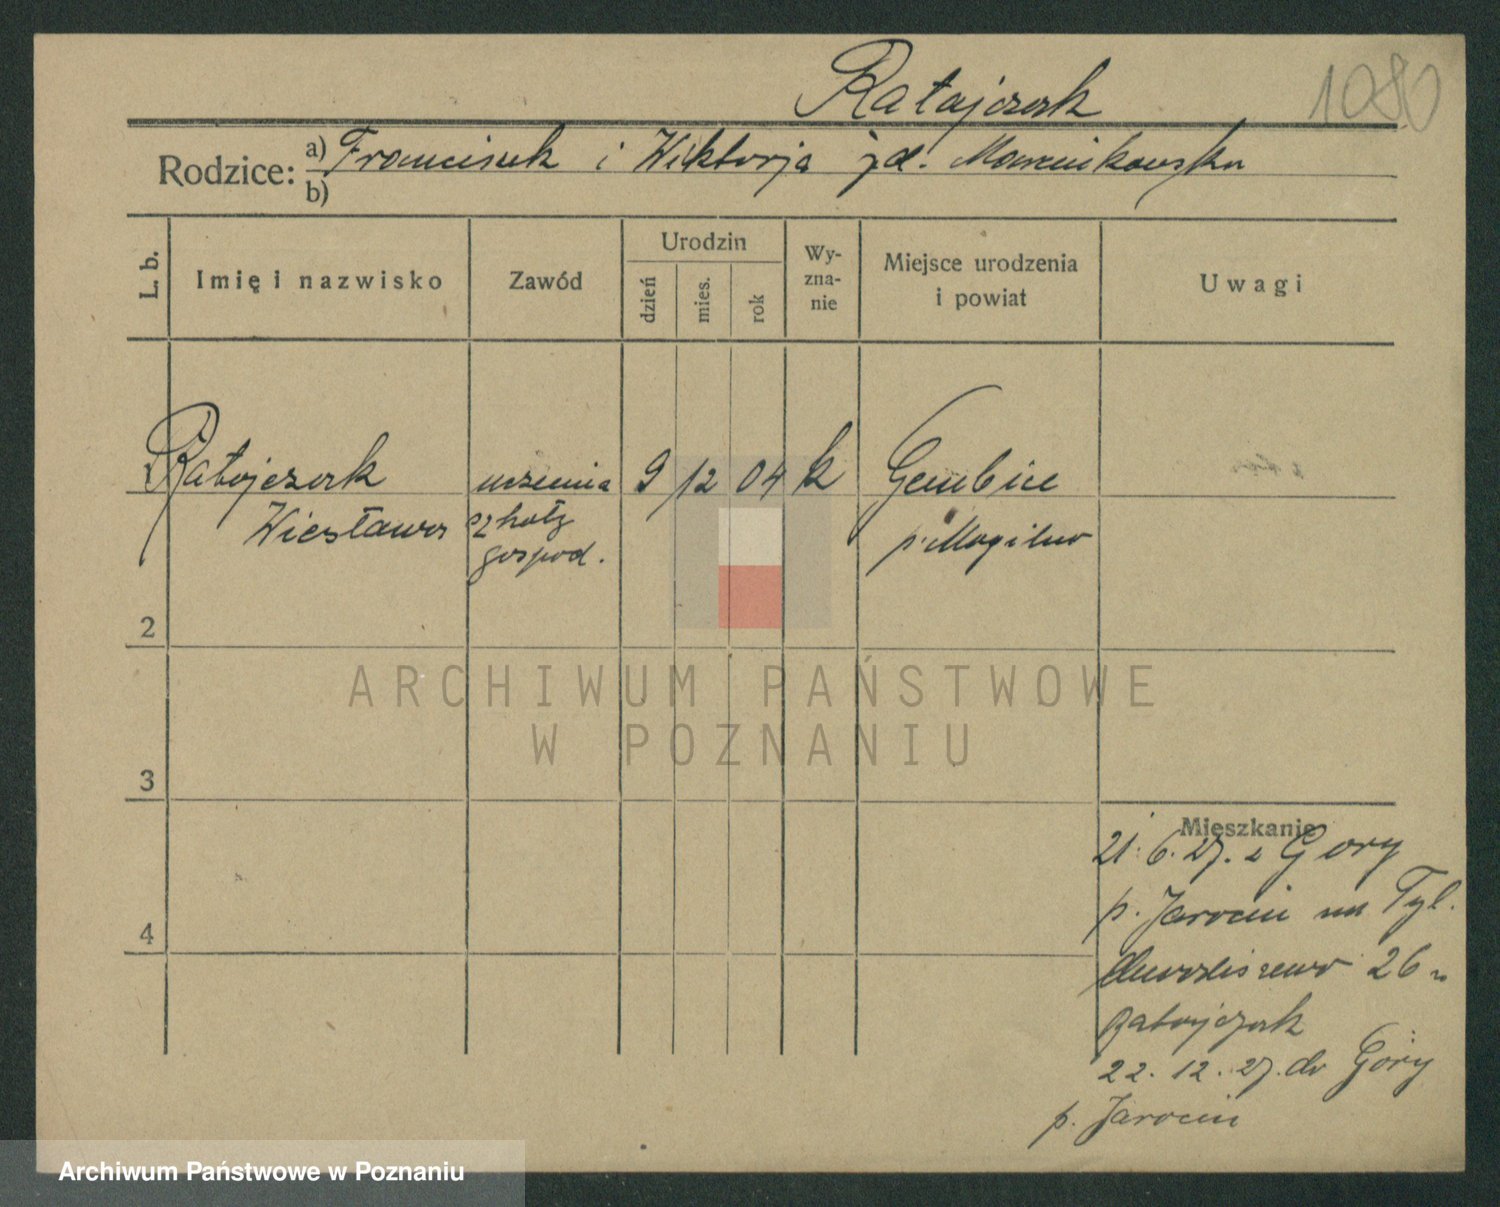 Ratajczak
1080
Rodzice: a) Franciszek i Wiktorja zd. Marcinkowska
b)
L. b.
Imię i nazwisko
Zawód
Urodzin
dzień
mies.
rok
Wy-
zna-
nie
Miejsce urodzenia
i powiat
Uwagi
Ratajczak uczenica 9 12 04 k Gembice
Wiesława szkoły p. Mogilno
gospod.
2
3
4
Mieszkanie
21.6.27. z Góry
p. Jarocin na Tyl.
Chwaliszewo 26 u
Ratajczak
22.12.27. do Góry
p. Jarocin
ARCHIWUM PAŃSTWOWE
W POZNANIU
Archiwum Państwowe w Poznaniu